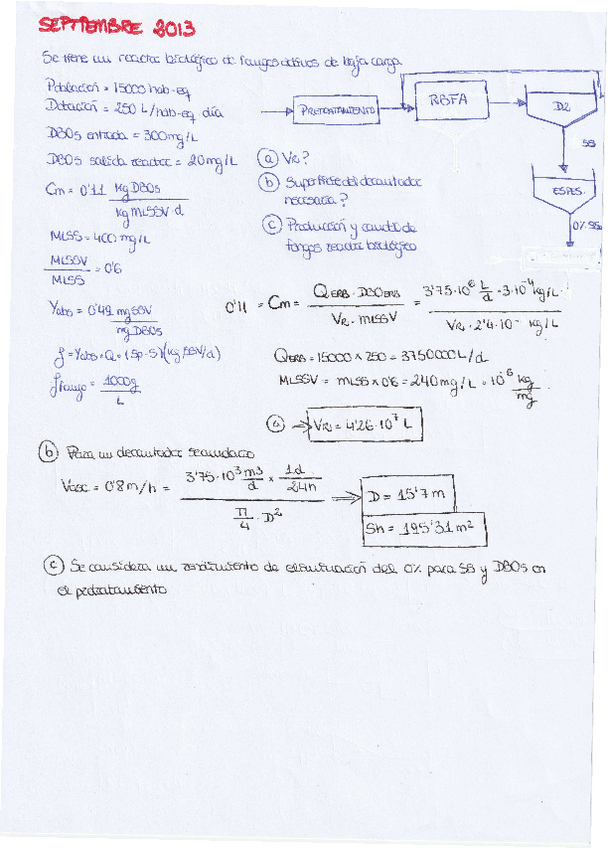 SEPTIEMBRE 2013
Se tiene un reactor biológico de fangos activos de baja carga
Población = 15000 hab-eq
Dotación = 250 L/hab-eq día
DBO5 entrada = 300 mg/L
DBO5 salida reactor = 20 mg/L
Cm = 0'11 kg DBO5 / kg MLSSV·d
MLSS = 400 mg/L
MLSSV / MLSS = 0'6
Yobs = 0'49 mg SSV / mg DBO5
f = Yobs·Q·(Sp-S) (kg SSV/d)
ffango = 1000g / L
PRETRATAMIENTO
RBFA
D2
SS
ESPES.
0% SS
a VR?
b Superficie del decantador
necesaria?
c Producción y caudal de
fangos reactor biológico
0'11 = Cm = QERB · DBOERB / VR · MLSSV = 3'75·10⁶ L/d · 3·10⁻⁴ kg/L / VR · 2'4·10⁻ kg/L
QERB = 15000 × 250 = 3750000 L/d
MLSSV = MLSS × 0'6 = 240 mg/L · 10⁻⁶ kg/mg
a → VR = 4'26·10⁷ L
b Para un decantador secundario
Vasc = 0'8 m/h = 3'75·10³ m3/d × 1d/24h / π/4 · D² → D = 15'7 m
Sh = 195'31 m²
c Se considera un rendimiento de eliminación del 0% para SS y DBO5 en
el pretratamiento